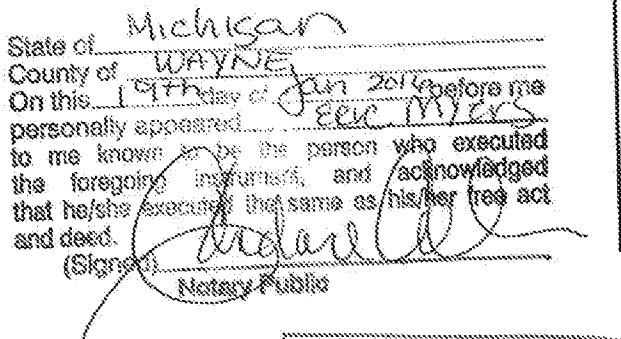 State of Michigan
County of WAYNE
On this 19th day of Jan 2014 before me
personally appeared Eric Myers
to me known to be the person who executed
the foregoing instrument, and acknowledged
that he/she executed the same as his/her free act
and deed.
(Signed)
Notary Public